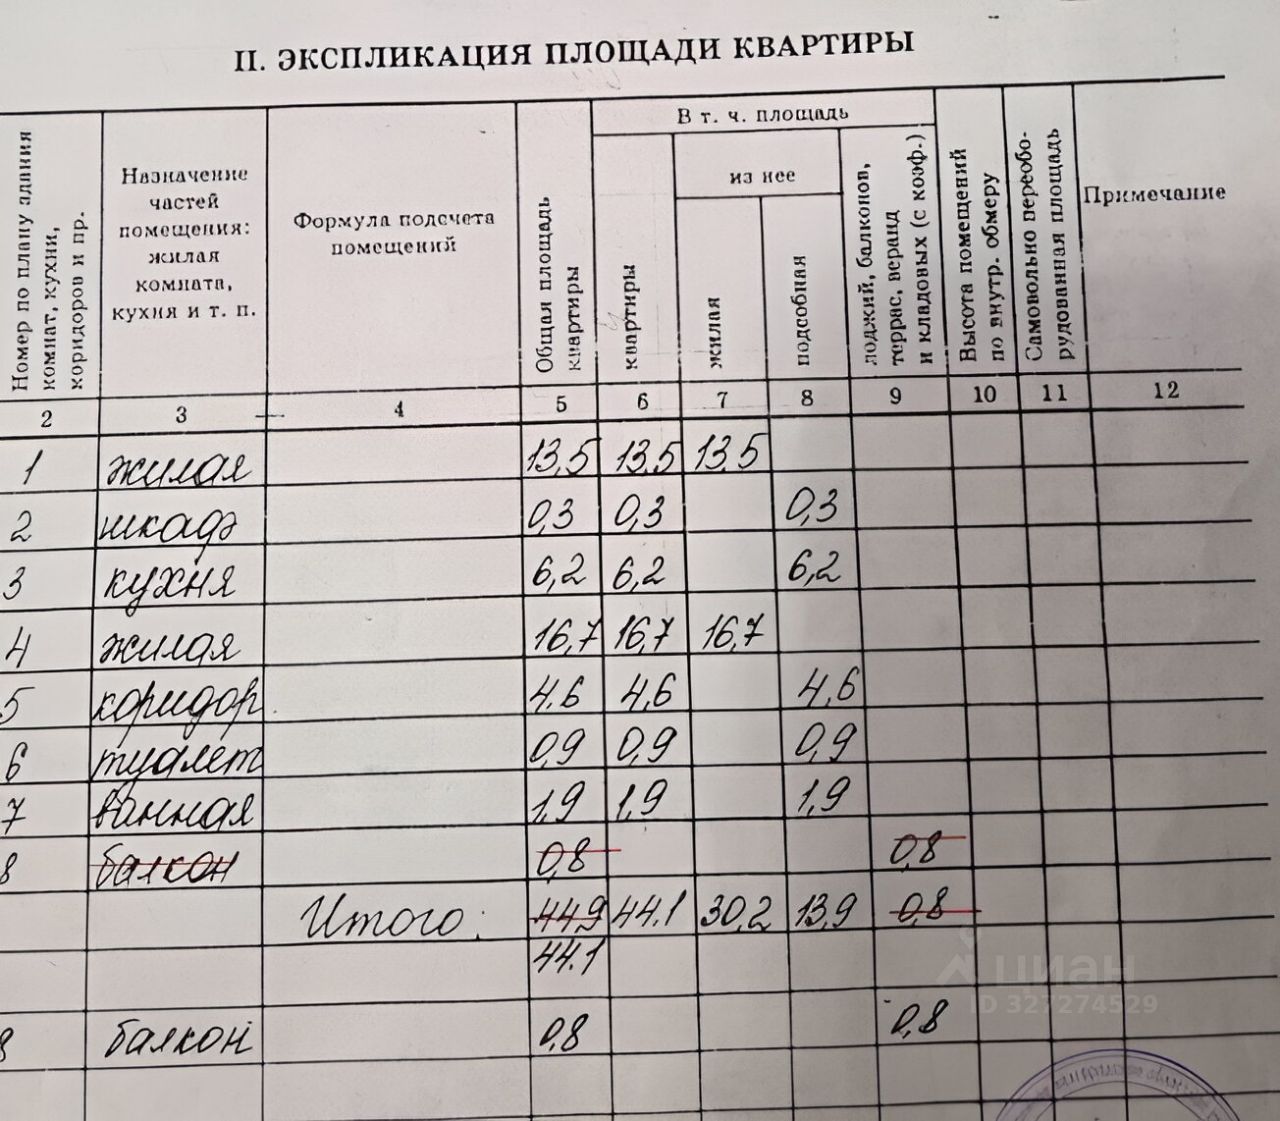 II. ЭКСПЛИКАЦИЯ ПЛОЩАДИ КВАРТИРЫ
Номер по плану здания
комнат, кухни,
коридоров и пр.
Назначение
частей
помещения:
жилая
комната,
кухня и т. п.
Формула подсчета
помещений
Общая площадь
квартиры
В т. ч. площадь
квартиры
из нее
жилая
подсобная
лоджий, балконов,
террас, веранд
и кладовых (с коэф.)
Высота помещений
по внутр. обмеру
Самовольно переобо-
рудованная площадь
Примечание
2 3 4 5 6 7 8 9 10 11 12
1 жилая 13,5 13,5 13,5
2 шкаф 0,3 0,3 0,3
3 кухня 6,2 6,2 6,2
4 жилая 16,7 16,7 16,7
5 коридор 4.6 4,6 4,6
6 туалет 0,9 0,9 0,9
7 ванная 1,9 1,9 1,9
8 балкон 0,8 0,8
Итого: 44,9 44.1 30,2 13,9 0,8
44.1
8 балкон 0,8 0,8
циан
ID 327274529